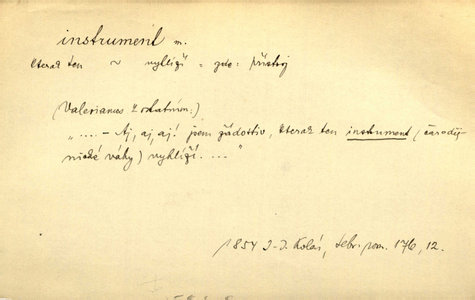 instrument m.
kterak ten ~ vyhlíží =
(Valerianus
"... – Aj, aj, aj! jsem žádostiv, kterak ten instrument (čaroděj-
nické váhy) vyhlíží. ..."
1854 J. J. Kolár, 176, 12.